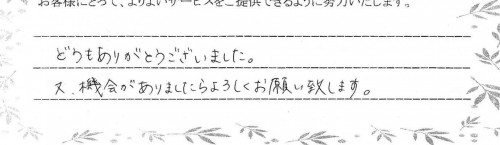 お客様にとって、よりよいサービスをご提供できるように努力いたします。
どうもありがとうございました。
又、機会がありましたらよろしくお願い致します。